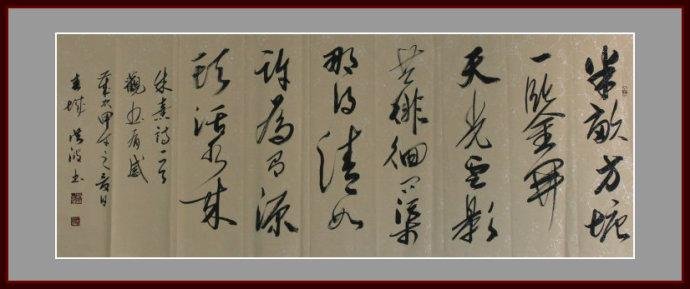 半畝方塘
一鑑開
天光雲影
共徘徊问渠
那得清如
許為有源
頭活水來
朱熹詩一首
觀书有感
歲次甲午之日
洪波书